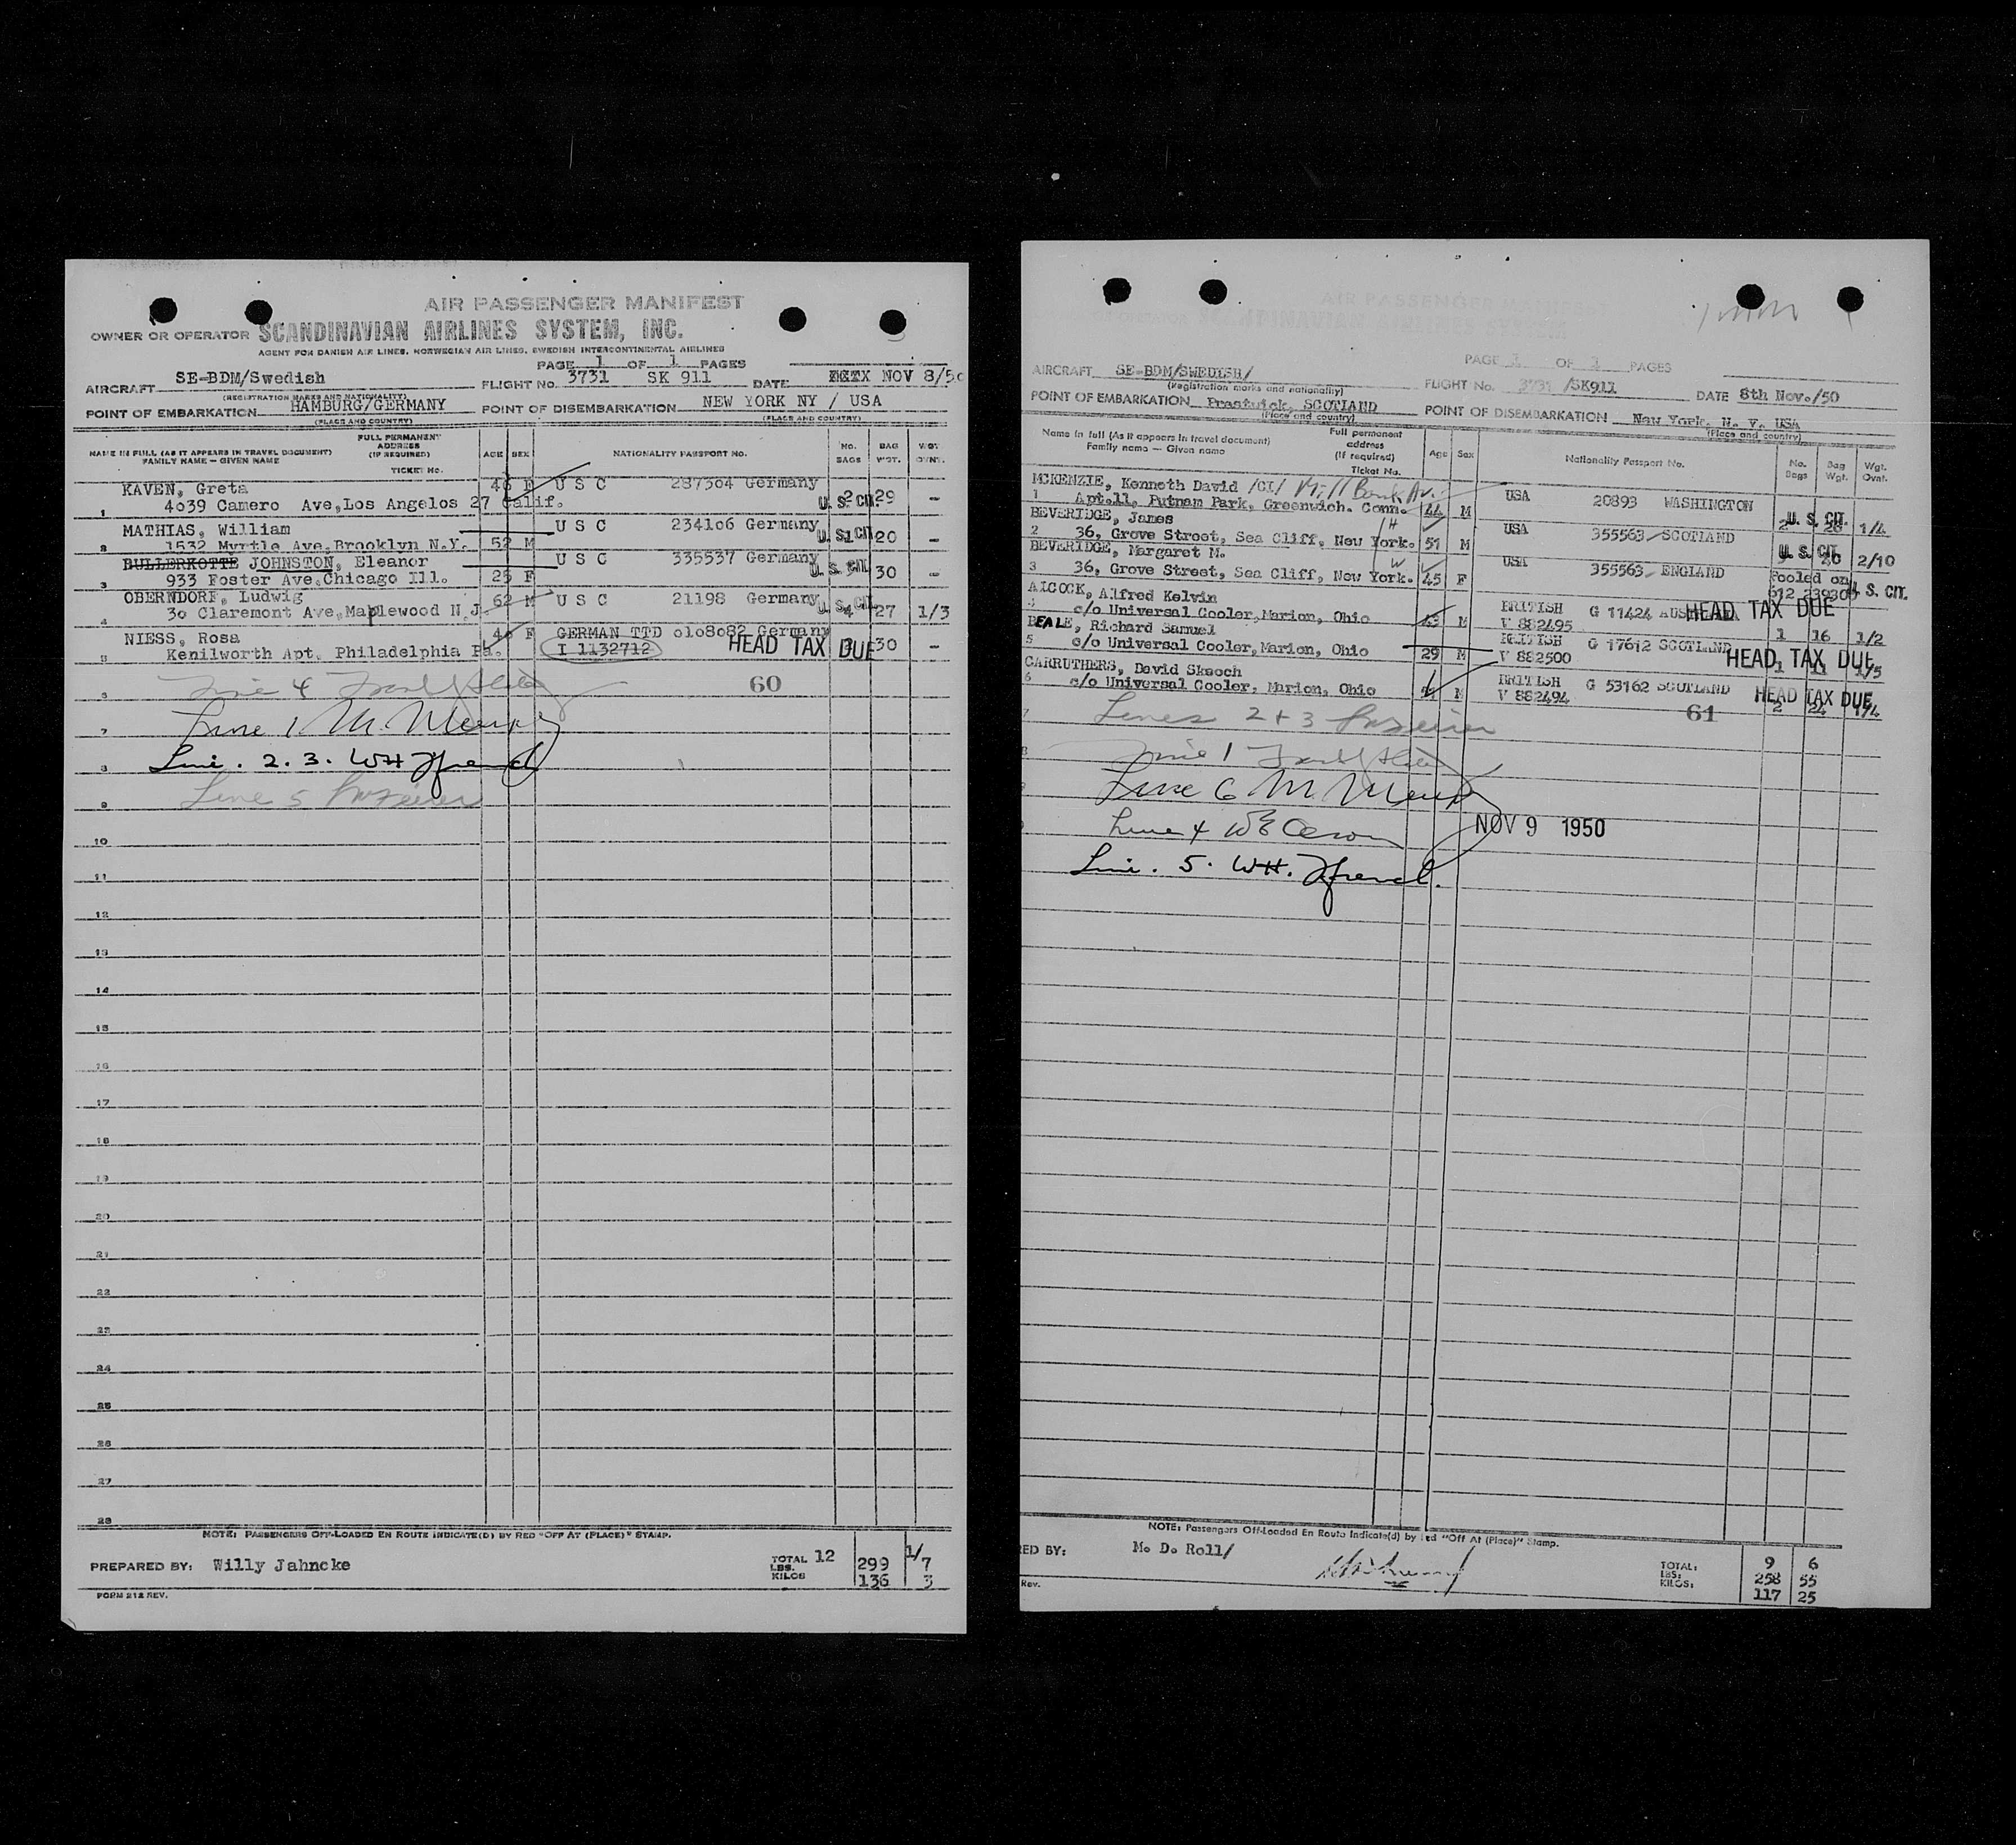 AIR PASSENGER MANIFEST
OWNER OR OPERATOR SCANDINAVIAN AIRLINES SYSTEM, INC.
AGENT FOR DANISH AIR LINES, NORWEGIAN AIR LINES, SWEDISH INTERCONTINENTAL AIRLINES
PAGE 1 OF 1 PAGES
AIRCRAFT SE-BDM/Swedish FLIGHT No. 3731 SK 911 DATE NOV 8/50
(REGISTRATION MARKS AND NATIONALITY)
POINT OF EMBARKATION HAMBURG/GERMANY POINT OF DISEMBARKATION NEW YORK NY / USA
(PLACE AND COUNTRY) (PLACE AND COUNTRY)
NAME IN FULL (AS IT APPEARS IN TRAVEL DOCUMENT) FAMILY NAME — GIVEN NAME FULL PERMANENT ADDRESS (IF REQUIRED) TICKET No. AGE SEX NATIONALITY PASSPORT NO. No. BAGS BAG WGT. WGT OVNT.
KAVEN, Greta 46 F U S C 287304 Germany
1 4039 Camero Ave,Los Angelos 27 Calif. U. S. CIT. 2 29 -
MATHIAS, William U S C 234106 Germany
2 1532 Myrtle Ave,Brooklyn N.Y. 52 M U. S. CIT. 1 20 -
BULLERKOTTE JOHNSTON, Eleanor U S C 335537 Germany
3 933 Foster Ave,Chicago Ill. 25 F U. S. CIT. 30 -
OBERNDORF, Ludwig 62 M U S C 21198 Germany
4 30 Claremont Ave,Maplewood N.J U. S. CIT. 4 27 1/3
NIESS, Rosa 46 F GERMAN TTD 0108082 Germany
5 Kenilworth Apt. Philadelphia Pa. I 1132712 HEAD TAX DUE 30 -
6 Line 4 60
7 Line 1 M.
8 Line. 2. 3. WH French
9 Line 5
10
11
12
13
14
15
16
17
18
19
20
21
22
23
24
25
26
27
28
NOTE: PASSENGERS OFF-LOADED EN ROUTE INDICATE(D) BY RED "OFF AT (PLACE)" STAMP.
PREPARED BY: Willy Jahncke TOTAL 12 1/
LBS. 299 7
KILOS 136 3
FORM 212 REV.
AIR PASSENGER MANIFEST
PAGE 1 OF 1 PAGES
AIRCRAFT SE-BDM/SWEDISH/ FLIGHT No. 3731 /SK911 DATE 8th Nov./50
(Registration marks and nationality)
POINT OF EMBARKATION Prestwick, SCOTLAND POINT OF DISEMBARKATION New York. N. Y. USA
(Place and country) (Place and country)
Name in full (As it appears in travel document) Family name — Given name Full permanent address (if required) Ticket No. Age Sex Nationality Passport No. No. Bags Bag Wgt. Wgt. Ovnt.
MCKENZIE, Kenneth David /CI/ Mill Bank Av. USA 20893 WASHINGTON
1 Apt.11, Putnam Park, Greenwich. Conn. 44 M U. S. CIT. 1/4
BEVERIDGE, James H USA 355563 SCOTLAND
2 36, Grove Street, Sea Cliff, New York. 51 M U. S. CIT. 2/10
BEVERIDGE, Margaret M. W USA 355563 ENGLAND
3 36, Grove Street, Sea Cliff, New York. 45 F Pooled on U. S. CIT.
ALCOCK, Alfred Kelvin BRITISH G 11424 HEAD TAX DUE
4 c/o Universal Cooler,Marion, Ohio 43 M V 882495 1 16 1/2
BEALE, Richard Samuel BRITISH G 17612 SCOTLAND
5 c/o Universal Cooler,Marion, Ohio 29 M V 882500 HEAD TAX DUE 1 11 1/5
CARRUTHERS, David Skeoch BRITISH G 53162 SCOTLAND
6 c/o Universal Cooler, Marion, Ohio M V 882494 HEAD TAX DUE 2 24 1/4
7 Lines 2+3 61
8 Line 1
Line 6 M.
Line 4 NOV 9 1950
Line. 5. WH. French.
NOTE: Passengers Off-Loaded En Route Indicate(d) by red "Off At (Place)" Stamp.
ED BY: M. D. Roll/ TOTAL: 9 6
LBS: 258 55
KILOS: 117 25
Rev.